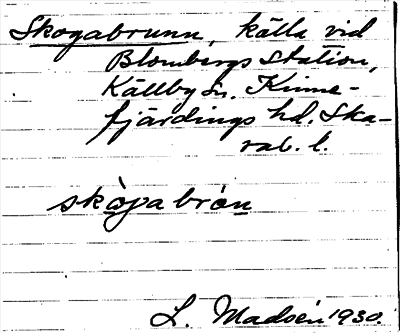 Skogabrunn, källa vid
Blombergs station,
Källby sn. Kinne-
fjärdings hd. Ska-
rab. l.
skògabròn
L. Madsén 1930.